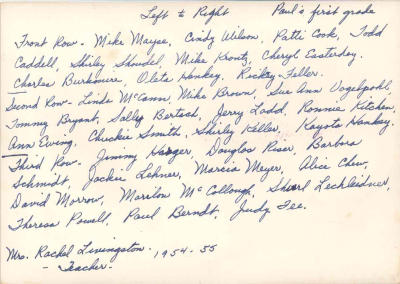 Left to Right Paul's first grade
Front Row - Mike Mayse, Cindy Wilson, Patti Cook, Todd
Caddell, Shirley Shmidel, Mike Krontz, Cheryl Easterday.
Charles Burkmire, Oleta Hankey, Rockey-Feller.
Second Row - Linda McCann, Mike Brown, Sue Ann Vogelpohl,
Tommy Bryant, Salley Bertsch, Jerry Ladd, Ronnie Kitchen,
Ann Ewing, Chuckie Smith, Shirley Keller, Kayota Hankey,
Third Row. Jimmy Douglas Riser, Barbara
Schmidt, Jackie Lehner, Marcia Meyer, Alice Chew,
David Morrow, Marilon McCollough, Lechleidner,
Theresa Powell, Paul Berndt, Judy Fee.
Mrs. Rachel Livingston - 1954-55
- Teacher -